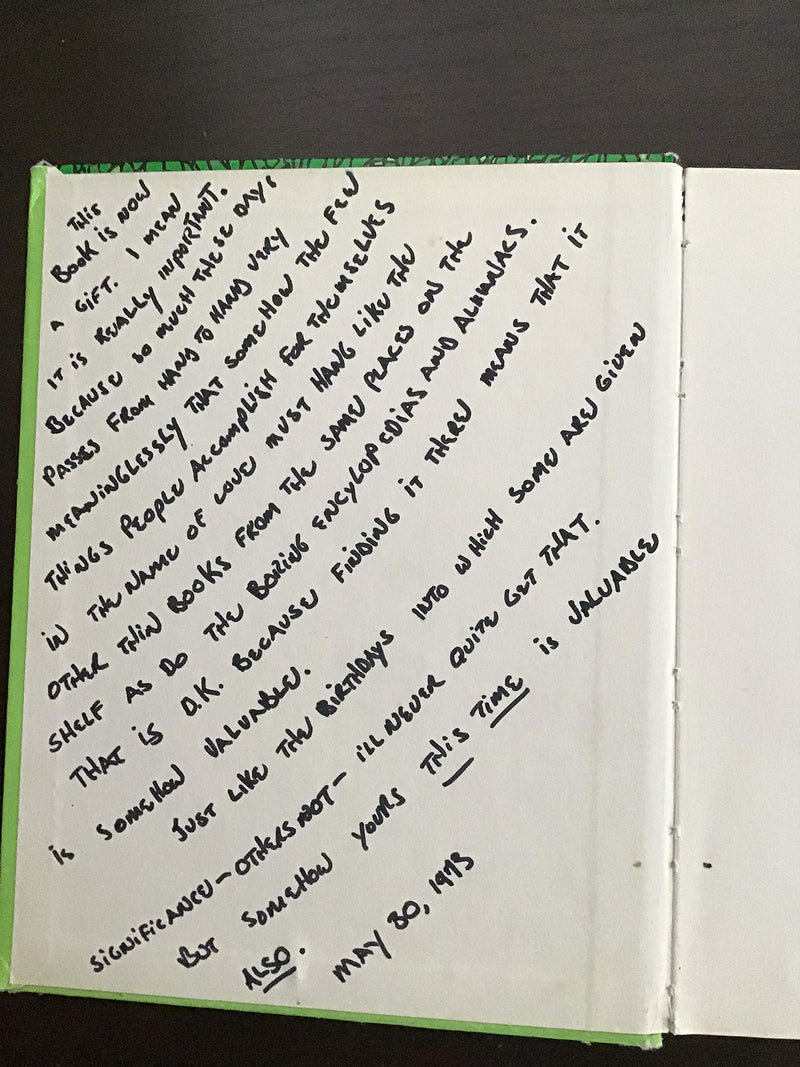 THIS
BOOK IS NOW
A GIFT. I MEAN
IT IS REALLY IMPORTANT.
BECAUSE SO MUCH THESE DAYS
PASSES FROM HAND TO HAND VERY
MEANINGLESSLY THAT SOMEHOW THE FEW
THINGS PEOPLE ACCOMPLISH FOR THEMSELVES
IN THE NAME OF LOVE MUST HANG LIKE THE
OTHER THIN BOOKS FROM THE SAME PLACES ON THE
SHELF AS DO THE BORING ENCYLOPEDIAS AND ALMINAES.
THAT IS O.K. BECAUSE FINDING IT THERE MEANS THAT IT
IS SOMEHOW VALUABLE.
JUST LIKE THE BIRTHDAYS INTO WHICH SOME ARE GIVEN
SIGNIFICANCE – OTHERS NOT – I'LL NEVER QUITE GET THAT.
BUT SOMEHOW YOURS THIS TIME IS VALUABLE
ALSO.
MAY 30, 1973